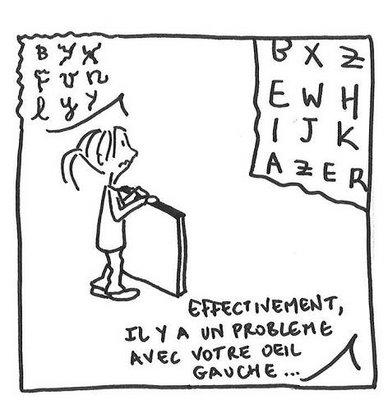 B Y X
F U n
l y Y
B X Z
E W H
I J K
A Z E R
EFFECTIVEMENT,
IL Y A UN PROBLEME
AVEC VOTRE OEIL
GAUCHE ...